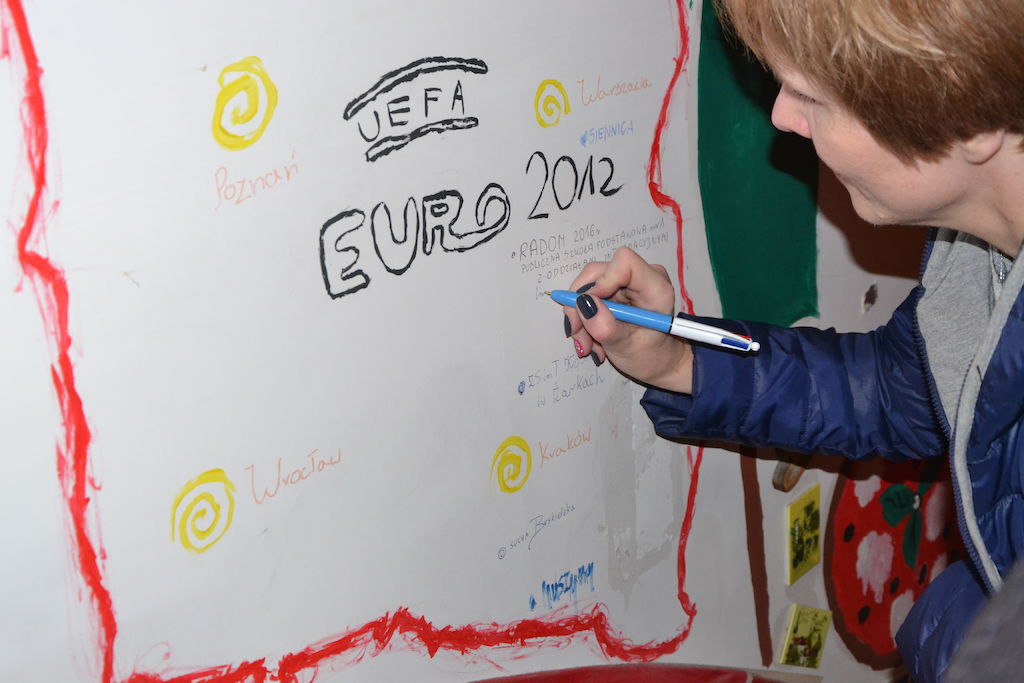 UEFA
EURO 2012
Poznań
Warszawa
SIENNICA
RADOM 2016r
PUBLICZNA SZKOŁA PODSTAWOWA nr 1
Z ODDZIAŁAMI
w Żarkach
Wrocław
Kraków
SUCHA Beskidzka